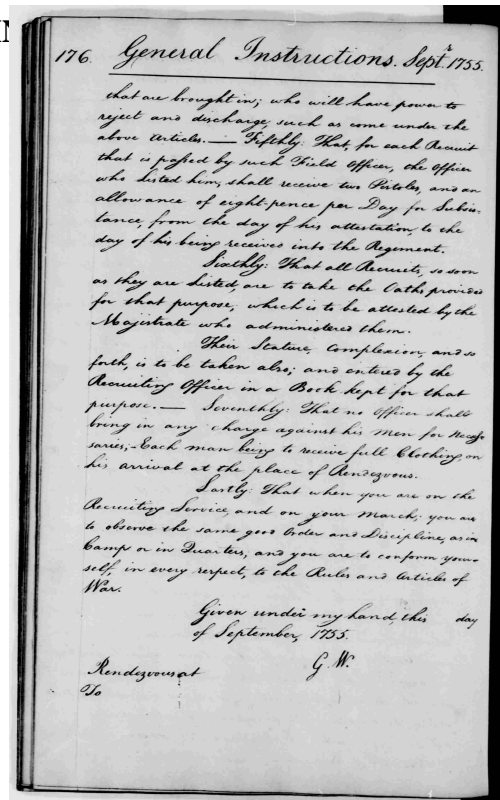 176. General Instructions. Septr. 1755.
that are brought in; who will have power to
reject and discharge such as come under the
above Articles. — Fifthly: That, for each Recruit
that is passed by such Field Officer, the Officer
who Listed him, shall receive two Pistoles, and an
allowance of eight-pence per Day for Subsis-
tance, from the day of his attestation, to the
day of his being received into the Regiment.
Sixthly: That all Recruits, so soon
as they are Listed, are to take the Oaths provided
for that purpose; which is to be attested by the
Majistrate who administered them.
Their Stature, Complexion, and so
forth, is to be taken also; and entered by the
Recruiting Officer in a Book kept for that
purpose. — Seventhly: That no Officer shall
bring in any charge against his Men for necess
saries; Each man being to receive full Clothing, on
his arrival at the place of Rendezvous.
Lastly: That when you are on the
Recruiting Service, and on your March; you are
to observe the same good Order and Discipline, as in
Camp or in Quarters, and you are to conform your-
self, in every respect, to the Rules and Articles of
War.
Given under my hand, this day
of September, 1755.
G. W.
Rendezvous at
To